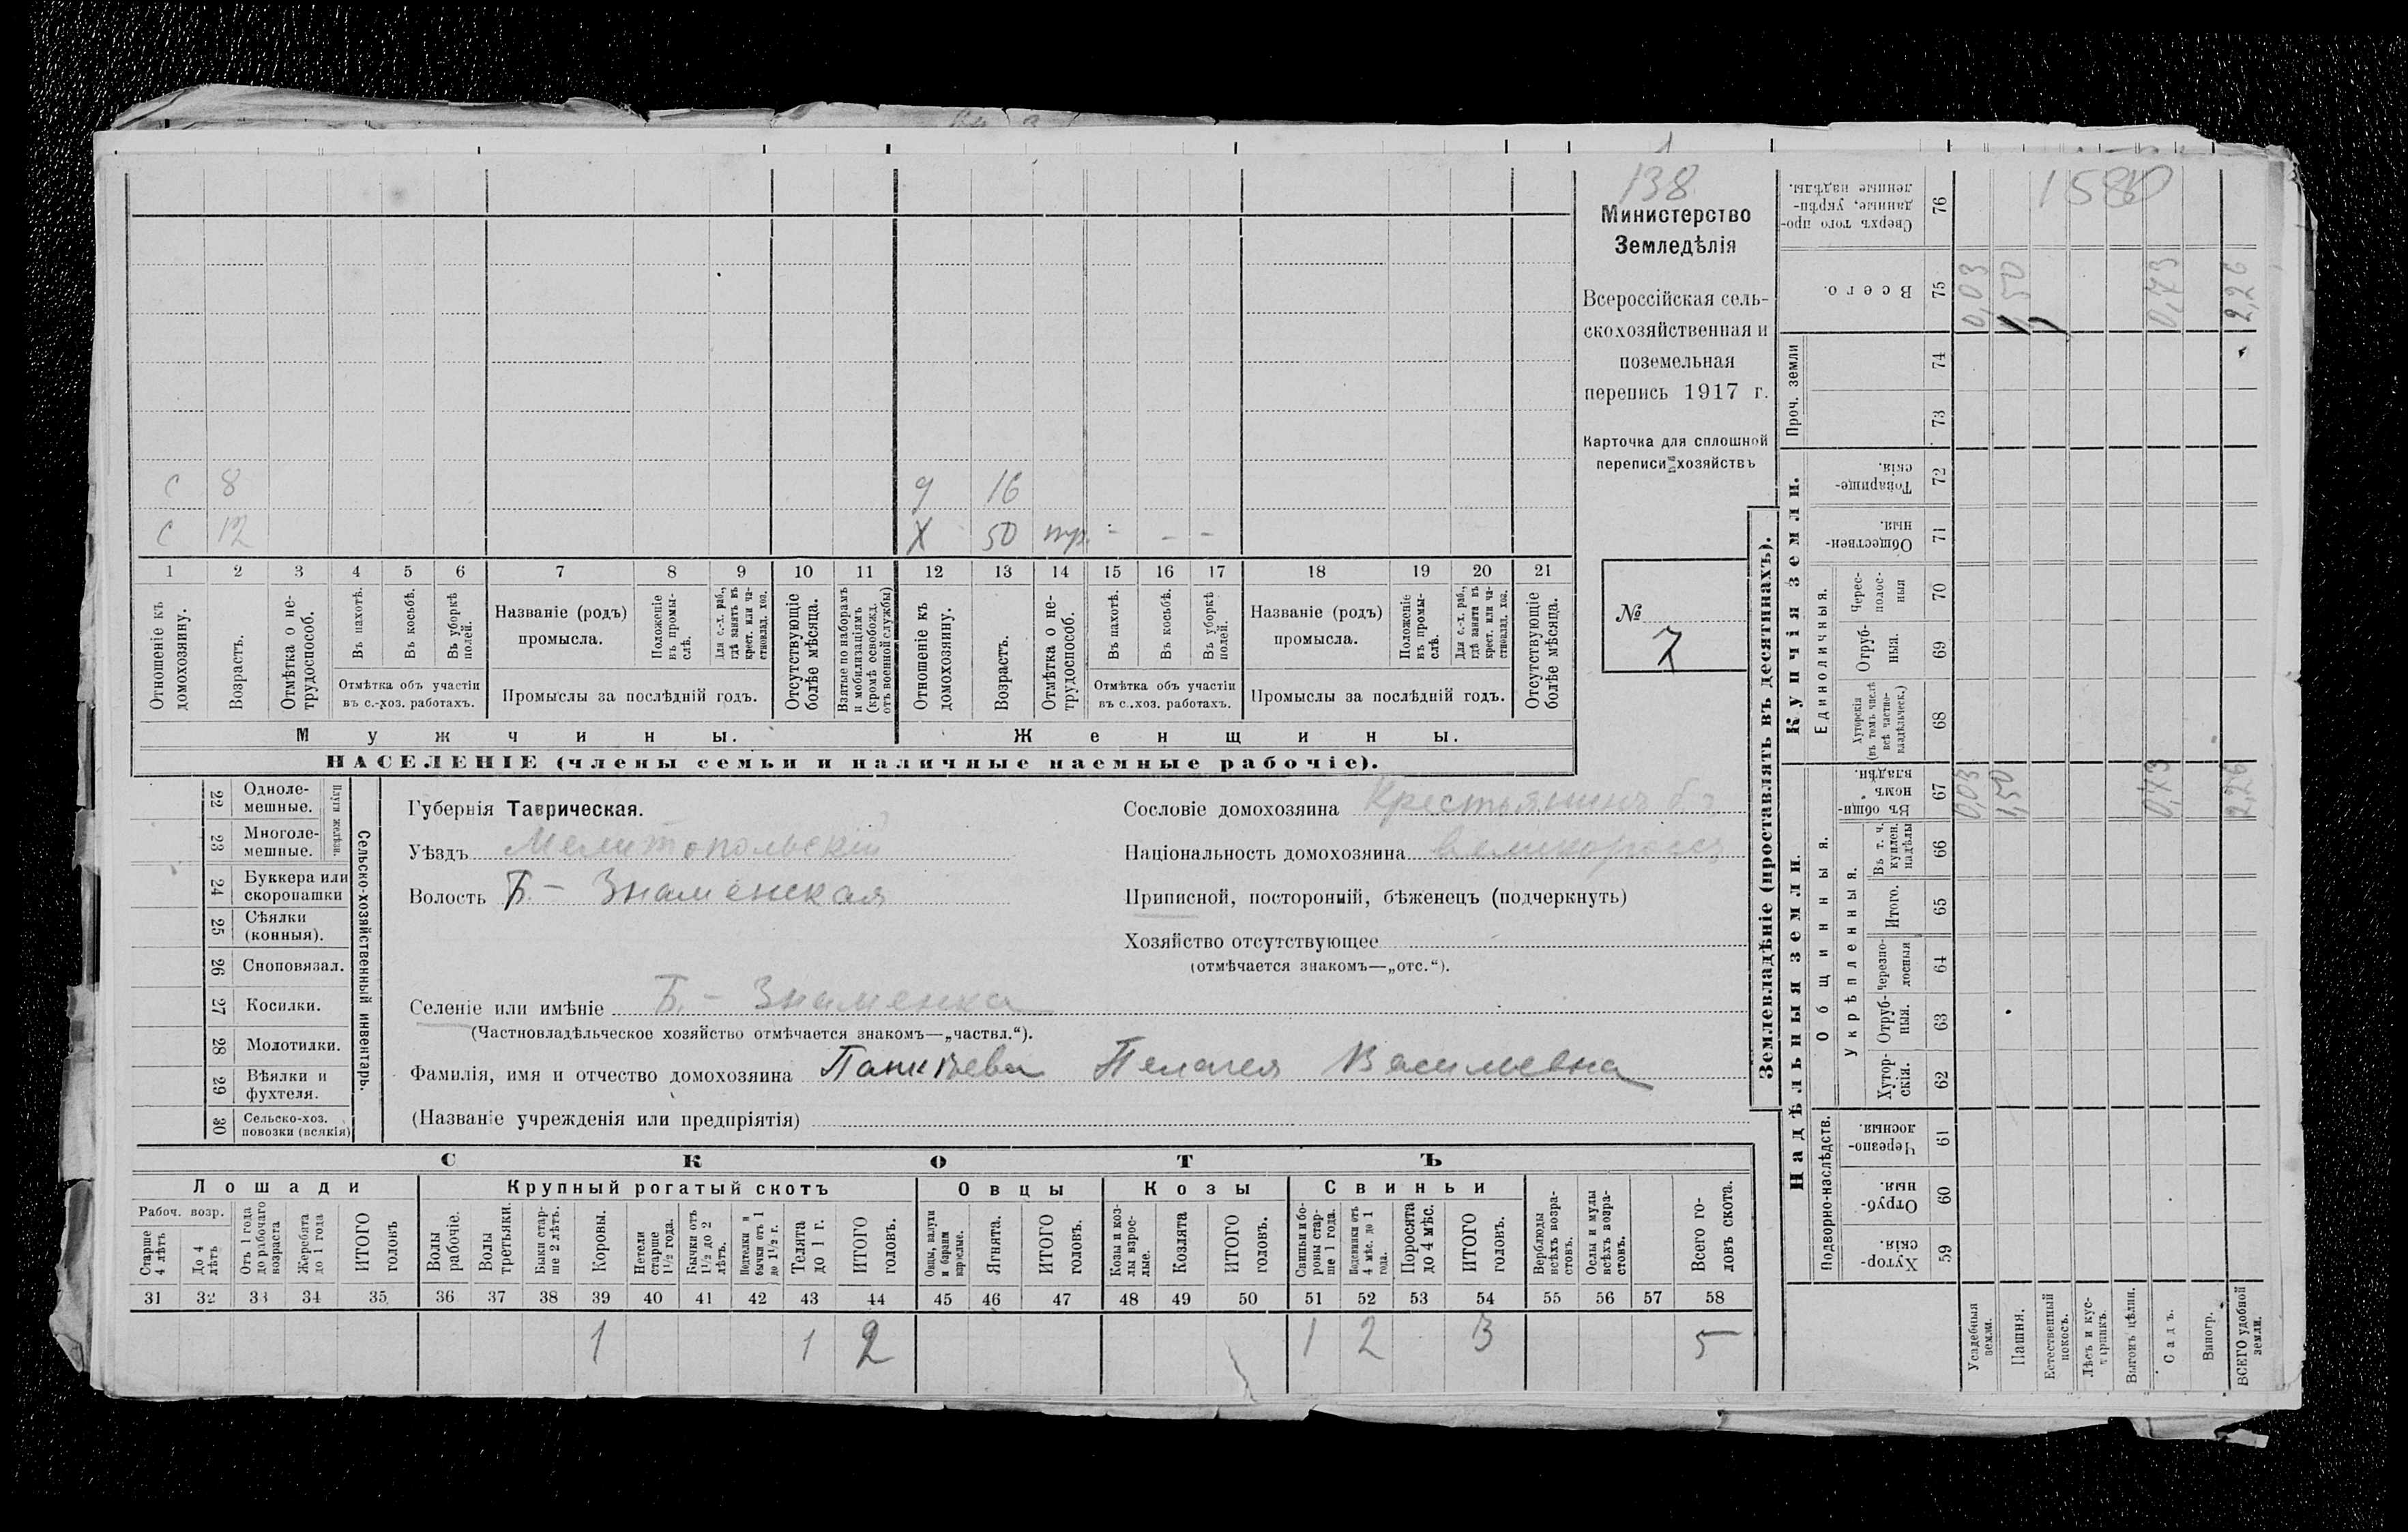 138
Министерство
Земледѣлія
Всероссійская сель-
скохозяйственная и
поземельная
перепись 1917 г.
Карточка для сплошной
переписи хозяйствъ
№
7
С 8 д 16
С 12 Х 50 тр. - - -
1 2 3 4 5 6 7 8 9 10 11 12 13 14 15 16 17 18 19 20 21
Отношеніе къ домохозяину.
Возрастъ.
Отмѣтка о не-трудоспособ.
Въ пахотѣ.
Въ косьбѣ.
Въ уборкѣ полей.
Отмѣтка объ участіи
въ с.-хоз. работахъ.
Названіе (родъ)
промысла.
Положеніе въ промы-слѣ.
Для с.-х. раб., гдѣ занятъ въ крест. или ча-стновлад. хоз.
Промыслы за послѣдній годъ.
Отсутствующіе болѣе мѣсяца.
Взятые по наборамъ и мобилизаціямъ (кромѣ освобожд. отъ военной службы)
Отношеніе къ домохозяину.
Возрастъ.
Отмѣтка о не-трудоспособ.
Въ пахотѣ.
Въ косьбѣ.
Въ уборкѣ полей.
Отмѣтка объ участіи
въ с..хоз. работахъ.
Названіе (родъ)
промысла.
Положеніе въ промы-слѣ.
Для с.-х. раб., гдѣ занята въ крест. или ча-стновлад. хоз.
Промыслы за послѣдній годъ.
Отсутствующіе болѣе мѣсяца.
Мужчины.
Женщины.
НАСЕЛЕНІЕ (члены семьи и наличные наемные рабочіе).
22 Одноле-мешные.
23 Многоле-мешные.
Плуги желѣзн.
24 Буккера или скоропашки
25 Сѣялки (конныя).
26 Сноповязал.
27 Косилки.
28 Молотилки.
29 Вѣялки и фухтеля.
30 Сельско-хоз. повозки (всякія)
Сельско-хозяйственный инвентарь.
Губернія Таврическая.
Уѣздъ Мелитопольскій
Волость Б.- Знаменская
Селеніе или имѣніе Б. - Знаменка
(Частновладѣльческое хозяйство отмѣчается знакомъ—„частвл.“).
Фамилія, имя и отчество домохозяина Пелагея Васильевна
(Названіе учрежденія или предпріятія)
Сословіе домохозяина Крестьянинъ
Національность домохозяина великороссъ
Приписной, посторонній, бѣженецъ (подчеркнуть)
Хозяйство отсутствующее
(отмѣчается знакомъ—„отс.“).
СКОТЪ
Лошади
Крупный рогатый скотъ
Овцы
Козы
Свиньи
Рабоч. возр.
Старше 4 лѣтъ
До 4 лѣтъ
Отъ 1 года до рабочаго возраста
Жеребята до 1 года
ИТОГО головъ
Волы рабочіе.
Волы третьяки.
Быки стар-ше 2 лѣтъ.
Коровы.
Нетели старше 1½ года.
Бычки отъ 1½ до 2 лѣтъ.
Нетелки и бычки отъ 1 до 1½ г.
Телята до 1 г.
ИТОГО головъ.
Овцы, валухи и бараны взрослые.
Ягнята.
ИТОГО головъ.
Козы и коз-лы взрос-лые.
Козлята
ИТОГО головъ.
Свиньи и бо-ровы стар-ше 1 года.
Подсвинки отъ 4 мѣс. до 1 года.
Поросята до 4 мѣс.
ИТОГО головъ.
Верблюды всѣхъ возра-стовъ.
Ослы и мулы всѣхъ возра-стовъ.
Всего го-ловъ скота.
31 32 33 34 35 36 37 38 39 40 41 42 43 44 45 46 47 48 49 50 51 52 53 54 55 56 57 58
1 1 2 1 2 3 5
Землевладѣніе (проставлять въ десятинахъ).
Купчія земли.
Надѣльныя земли.
Проч. земли
Единоличныя.
Общинныя.
Укрѣпленныя.
Подворно-наслѣдств.
Сверхъ того про-данные, укрѣп-ленные надѣлы. 76
Всего. 75
74
73
Товарище-скія. 72
Обществен-ныя. 71
Черес-полос-ныя 70
Отруб-ныя. 69
Хуторскія (въ томъ числѣ всѣ частно-владѣльческ.) 68
Въ общин-номъ владѣн. 67
Въ т. ч. куплен. надѣлы 66
Итого. 65
Черезпо-лосныя 64
Отруб-ныя. 63
Хутор-скія. 62
Черезпо-лосныя. 61
Отруб-ныя. 60
Хутор-скія. 59
0,03 1,50 0,73 2,26
0,03 1,50 0,73 2,26
Усадебныя земли.
Пашня.
Естественный покосъ.
Лѣсъ и кус-тарникъ.
Выгонъ цѣлин.
Садъ.
Виногр.
ВСЕГО удобной земли.